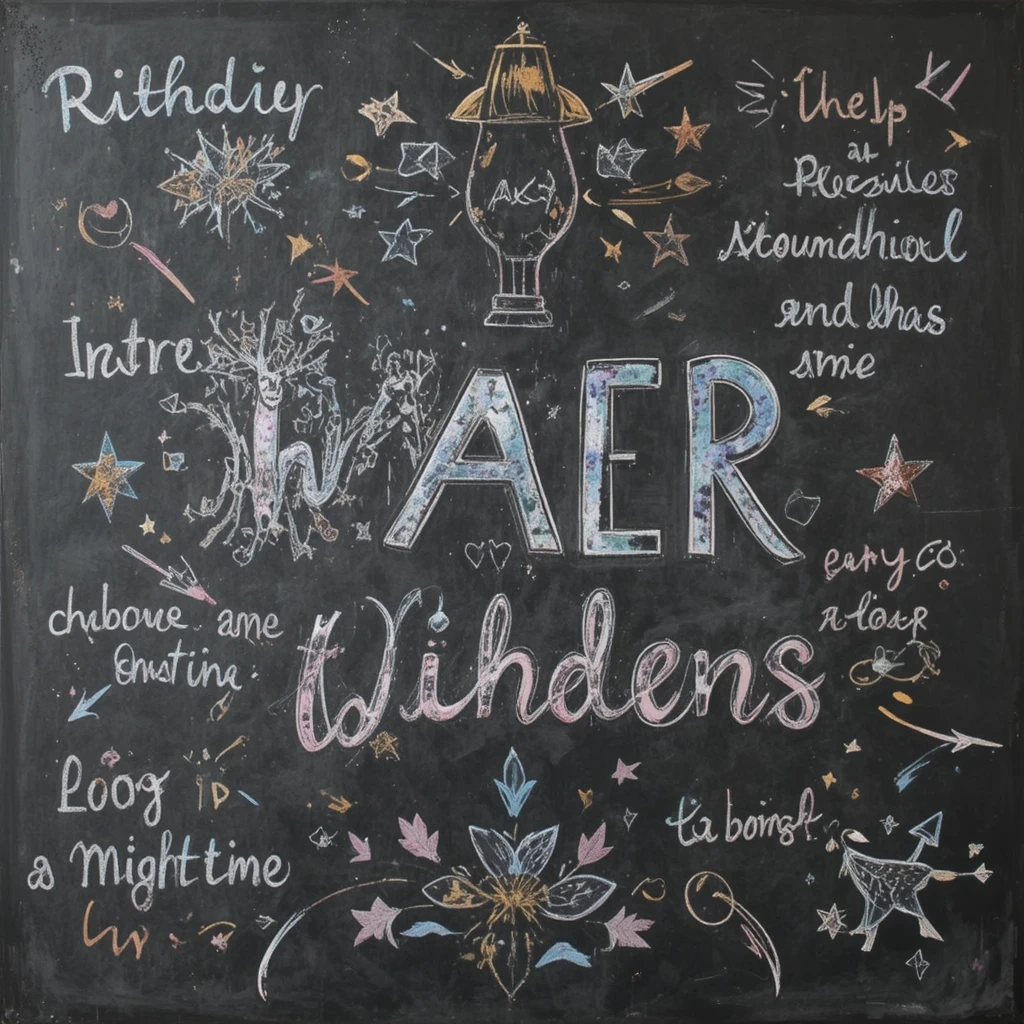 Rithdiey
AKJ
Thelp
at
Plecsuiles
Ntoundhioul
and lhas
smie
Intre
h AER
Wihdens
eary CO
a loap
chuboue ame
Onustine.
Loog ID
a Mighttime
ta boingst